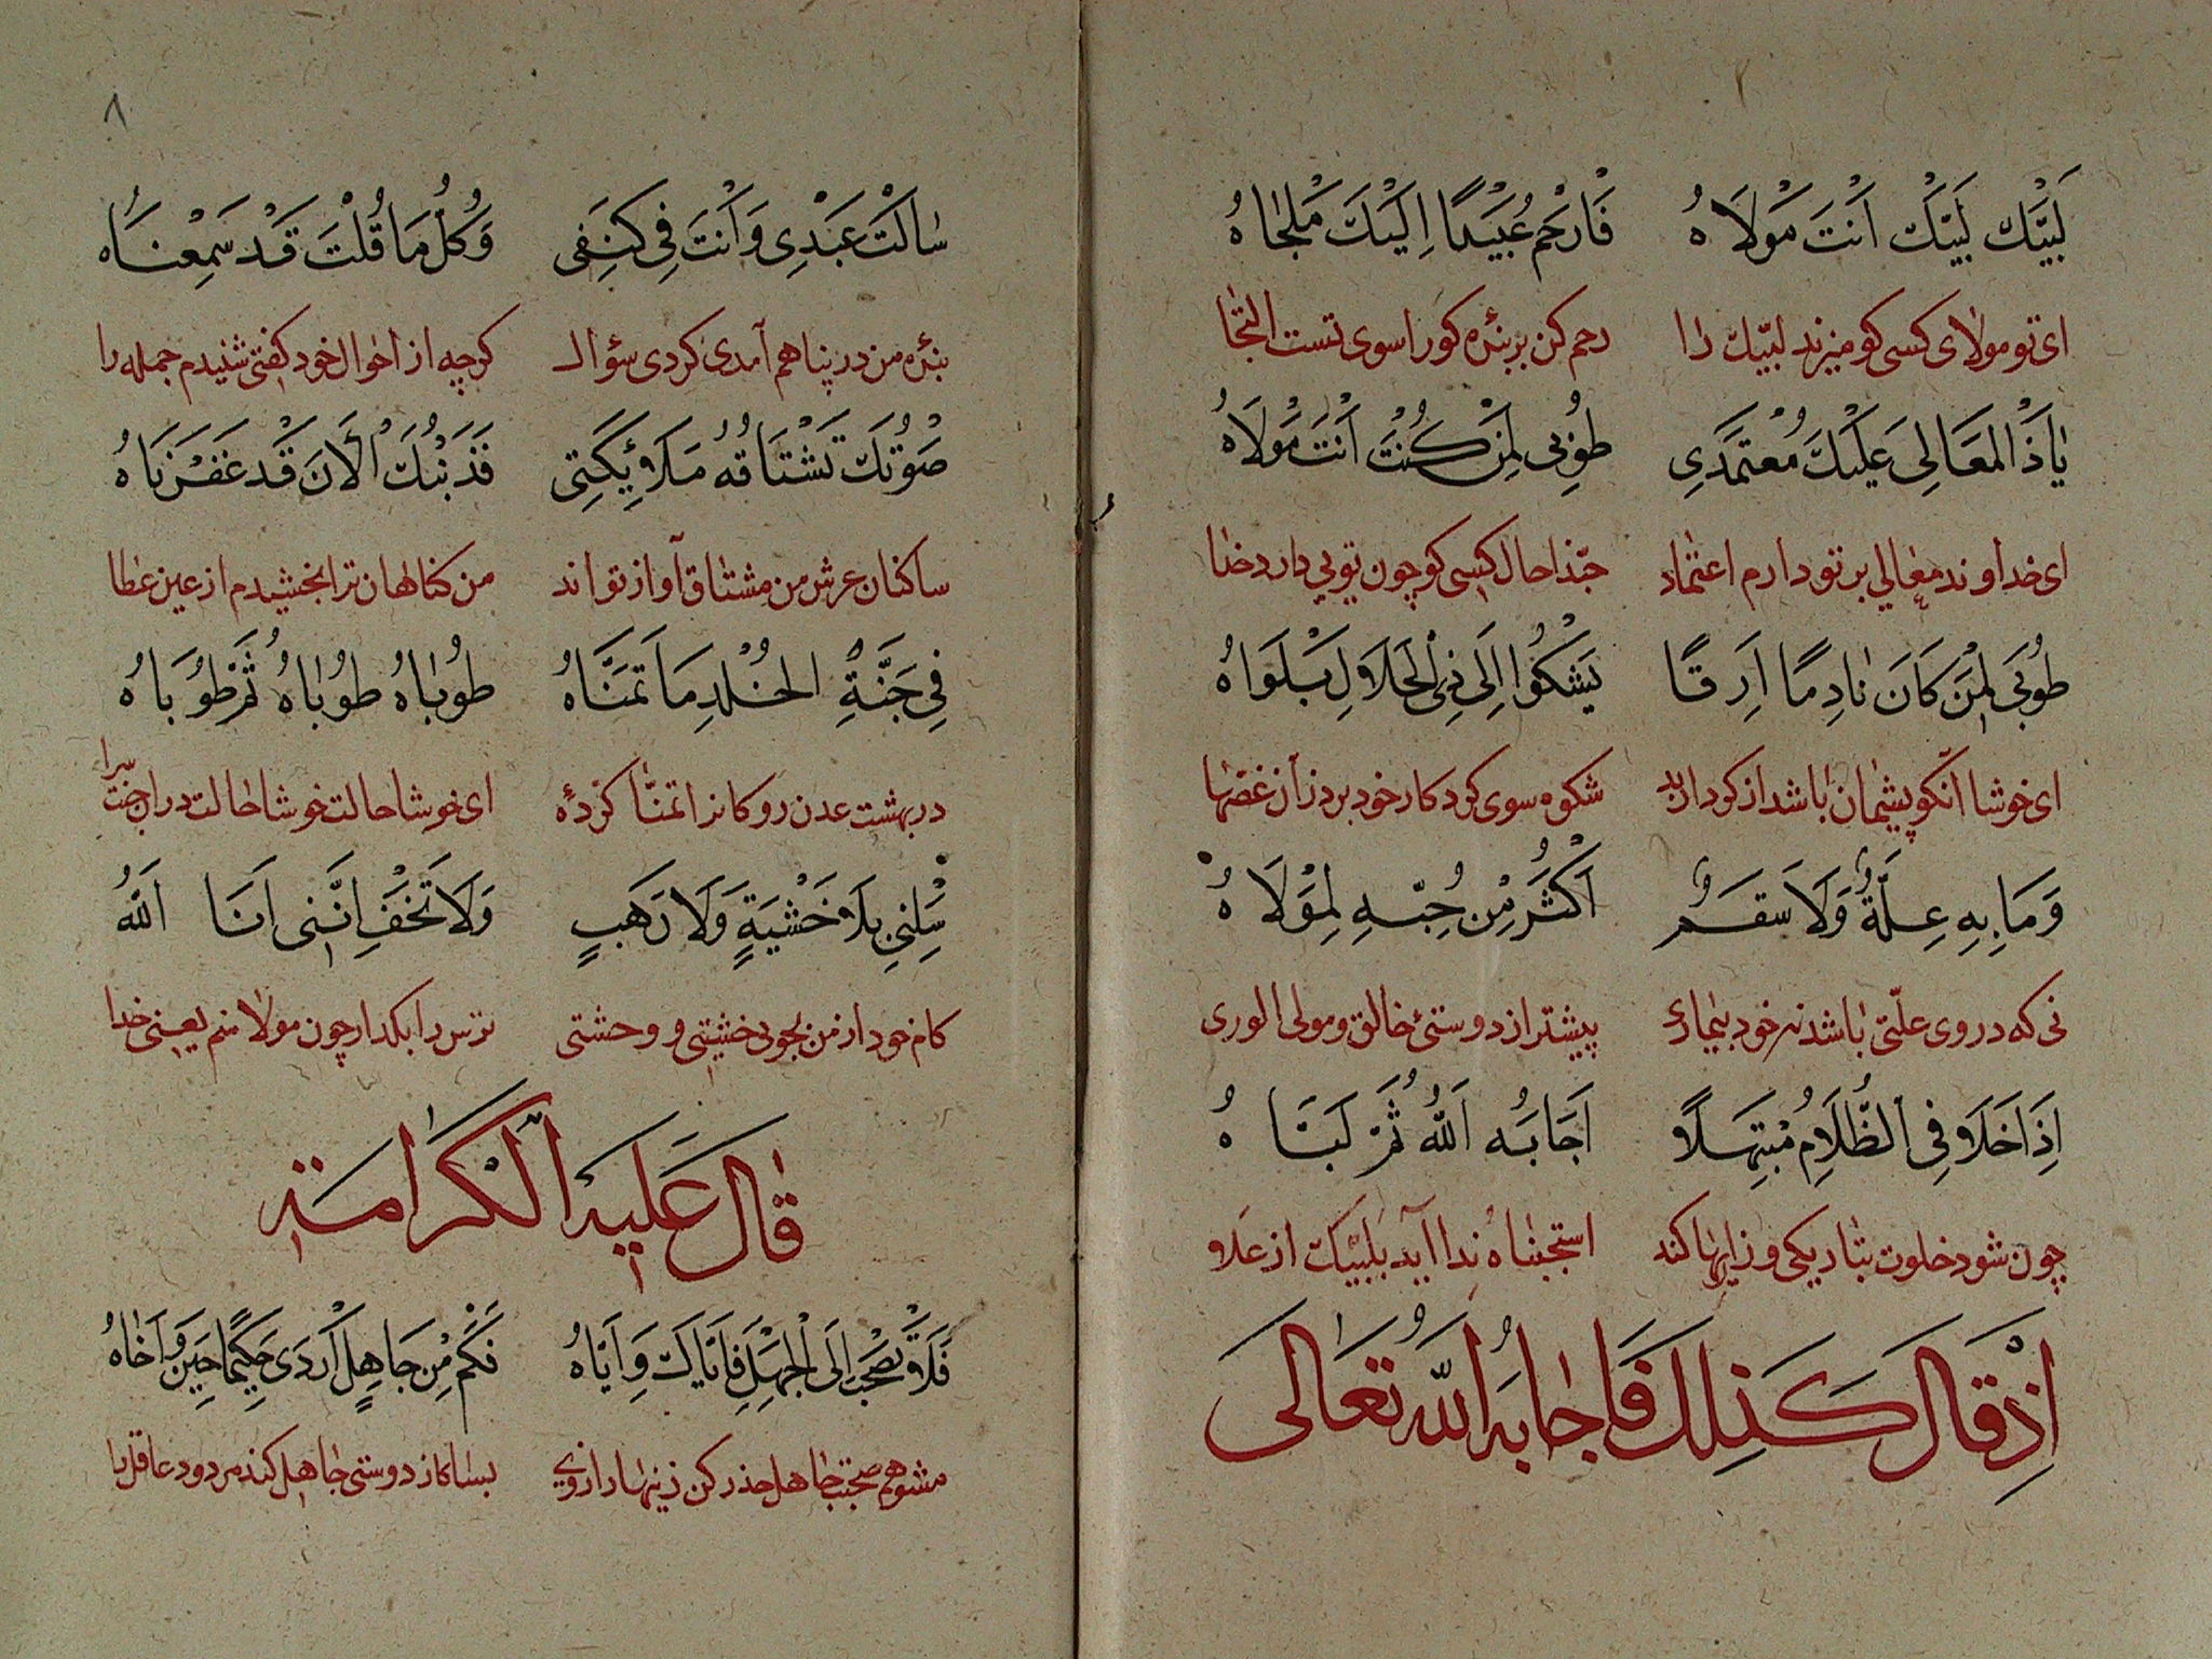 لَبَّيْكَ لَبَّيْكَ اَنْتَ مَوْلَاهُ فَارْحَمْ عُبَيْدًا اِلَيْكَ مَلْجَاهُ
ای تو مولای کسی کو میزند لبّیک را رحم کن بر بندهٔ کو را سوی تست التجا
یَاذَا الْمَعَالِی عَلَيْكَ مُعْتَمَدِی طُوبٰی لِمَنْ كُنْتَ اَنْتَ مَوْلَاهُ
ای خداوند معالی بر تو دارم اعتماد حبّذا حال کسی کو چون تویی دارد خدا
طُوبٰی لِمَنْ كَانَ نَادِمًا اَرِقًا یَشْكُوا اِلَی ذِی الْجَلَالِ بَلْوَاهُ
ای خوشا آنکو پشیمان باشد از کردار بد شکوه سوی کردکار خود برد زان غصّها
وَمَا بِهِ عِلَّةٌ وَلَا سَقَمٌ اَكْثَرُ مِنْ حُبِّهِ لِمَوْلَاهُ
نی که در وی علّتی باشد نه خود بیماری پیشتر از دوستیٔ خالق و مولی الوری
اِذَا خَلَا فِی الظَّلَامِ مُبْتَهِلًا اَجَابَهُ اَللّٰهُ ثُمَّ لَبَّاهُ
چون شود خلوت بتاریکی و زاریها کند استجبناه ندا آید بلبّیک از علا
اِذْ قَالَ كَذٰلِكَ فَاَجَابَهُ اللّٰهُ تَعَالَی
٨
سَاَلْتَ عَبْدِی وَاَنْتَ فِی كَنَفِی وَكُلُّ مَا قُلْتَ قَدْ سَمِعْنَاهُ
بندهٔ من در پناهم آمدی کردی سؤال کرچه از احوال خود کفتی شنیدم جمله را
صَوْتُكَ تَشْتَاقُهُ مَلَائِكَتِی فَذَنْبُكَ الْاٰنَ قَدْ غَفَرْنَاهُ
ساکنان عرش من مشتاق آواز تواند من کناهان ترا بخشیدم از عین عطا
فِی جَنَّةِ الْخُلْدِ مَا تَمَنَّاهُ طُوبَاهُ طُوبَاهُ ثُمَّ طُوبَاهُ
در بهشت عدن رو کانرا تمنّا کردهٔ ای خوشا حالت خوشا حالت در ان جنّت سرا
سَلْنِی بِلَا خَشْيَةٍ وَلَا رَهَبٍ وَلَا تَخَفْ اِنَّنِی اَنَا اَللّٰهُ
کام خود از من بجو بی خشیتی و وحشتی ترس را بکذار چون مولا منم یعنی خدا
قَالَ عَلَيْهِ الْكَرَامَةُ
فَلَا تَصْحَبْ اِلَی الْجَهْلِ فَاِيَّاكَ وَاِيَّاهُ فَكَمْ مِنْ جَاهِلٍ اَرْدٰی حَكِيمًا حِينَ وَاخَاهُ
مشو هم صحبت جاهل حذر کن زینهار از وی بسا کز دوستی جاهل کند مردود عاقل را